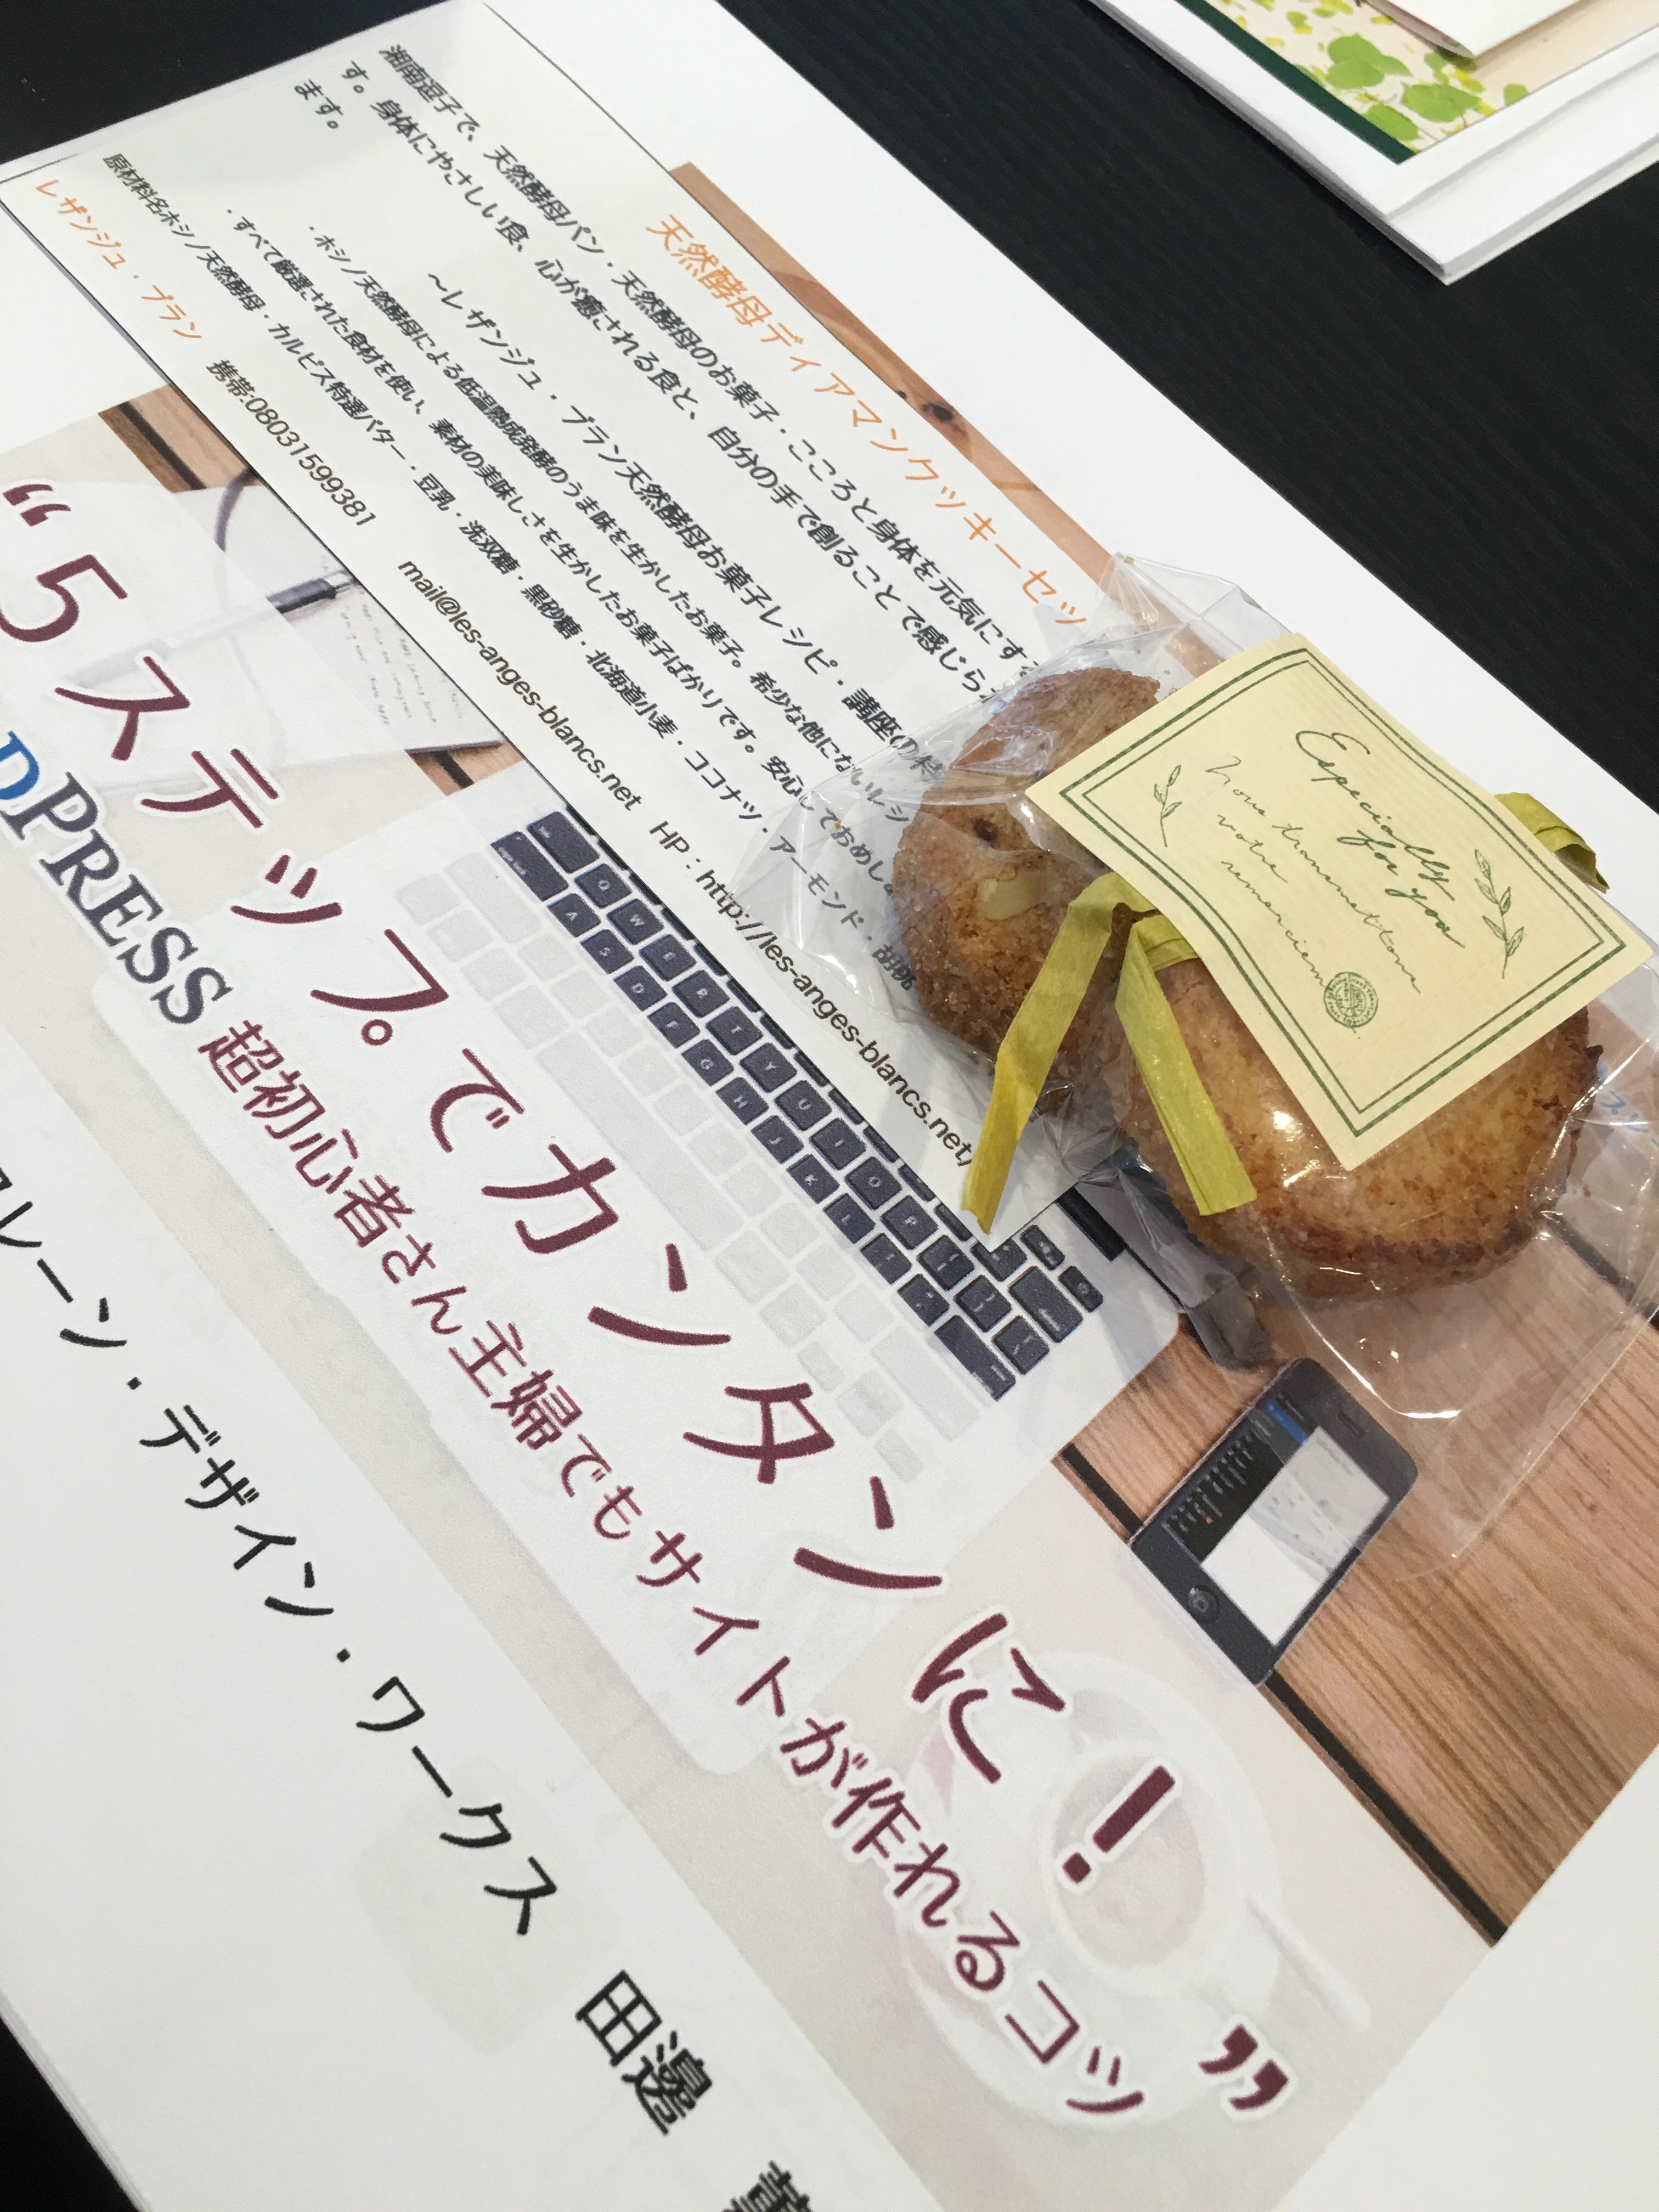 天然酵母ディアマンクッキーセッ
湘南逗子で、天然酵母パン・天然酵母のお菓子・こころと身体を元気にする
す。身体にやさしい食、心が癒される食と、自分の手で創ることで感じられ
ます。
～レザンジュ・ブラン天然酵母お菓子レシピ・講座の特
・ホシノ天然酵母による低温熟成発酵のうま味を生かしたお菓子。希少な他にないレシ
・すべて厳選された食材を使い、素材の美味しさを生かしたお菓子ばかりです。安心しておめし
原材料名ホシノ天然酵母・カルピス特選バター・豆乳・洗双糖・黒砂糖・北海道小麦・ココナツ・アーモンド・胡桃
レザンジュ・ブラン 携帯:08031599381 mail@les-anges-blancs.net HP：http://les-anges-blancs.net/
Especially
for you
Nous transmettons
votre
remerciem
“5ステップでカンタンに！”
DPRESS 超初心者さん主婦でもサイトが作れるコツ
レーン・デザイン・ワークス 田邉